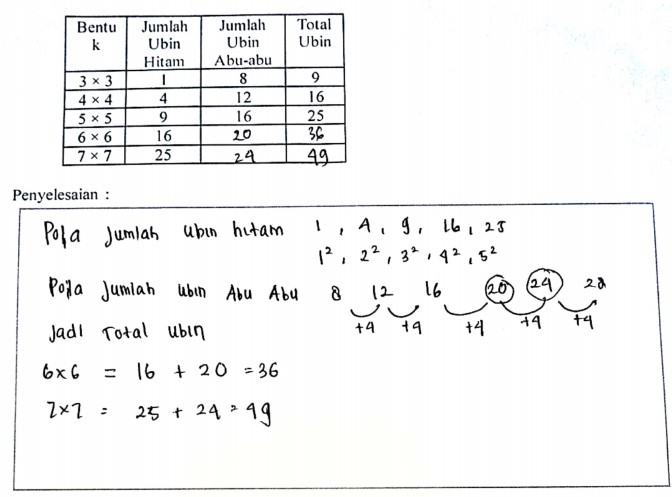 Bentu Jumlah Jumlah Total
k Ubin Ubin Ubin
Hitam Abu-abu
3 × 3 1 8 9
4 × 4 4 12 16
5 × 5 9 16 25
6 × 6 16 20 36
7 × 7 25 24 49
Penyelesaian :
Pola Jumlah ubin hitam 1 , 4 , 9 , 16 , 25
1² , 2² , 3² , 4² , 5²
Pola Jumlah ubin Abu Abu 8 12 16 20 24 28
+4 +4 +4 +4 +4
Jadi Total ubin
6×6 = 16 + 20 = 36
7×7 = 25 + 24 = 49